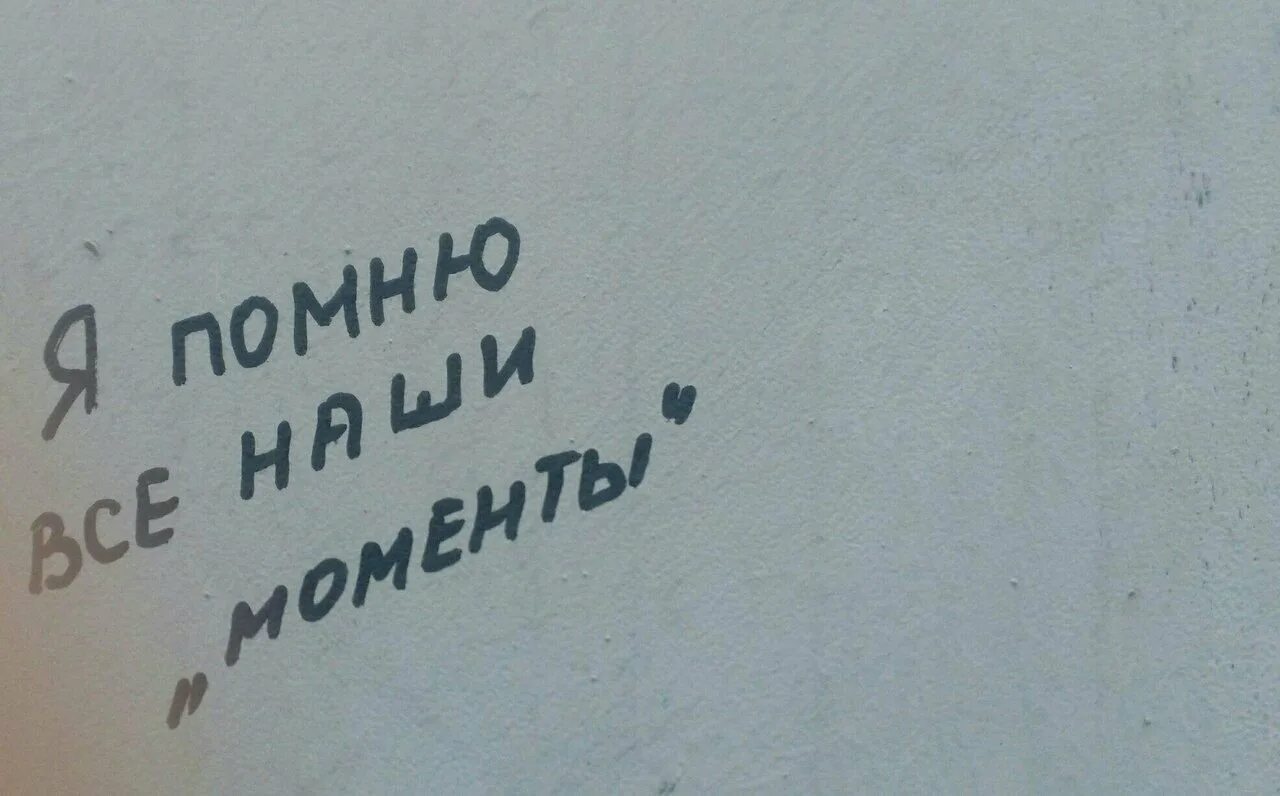 Я ПОМНЮ
ВСЕ НАШИ
„МОМЕНТЫ“